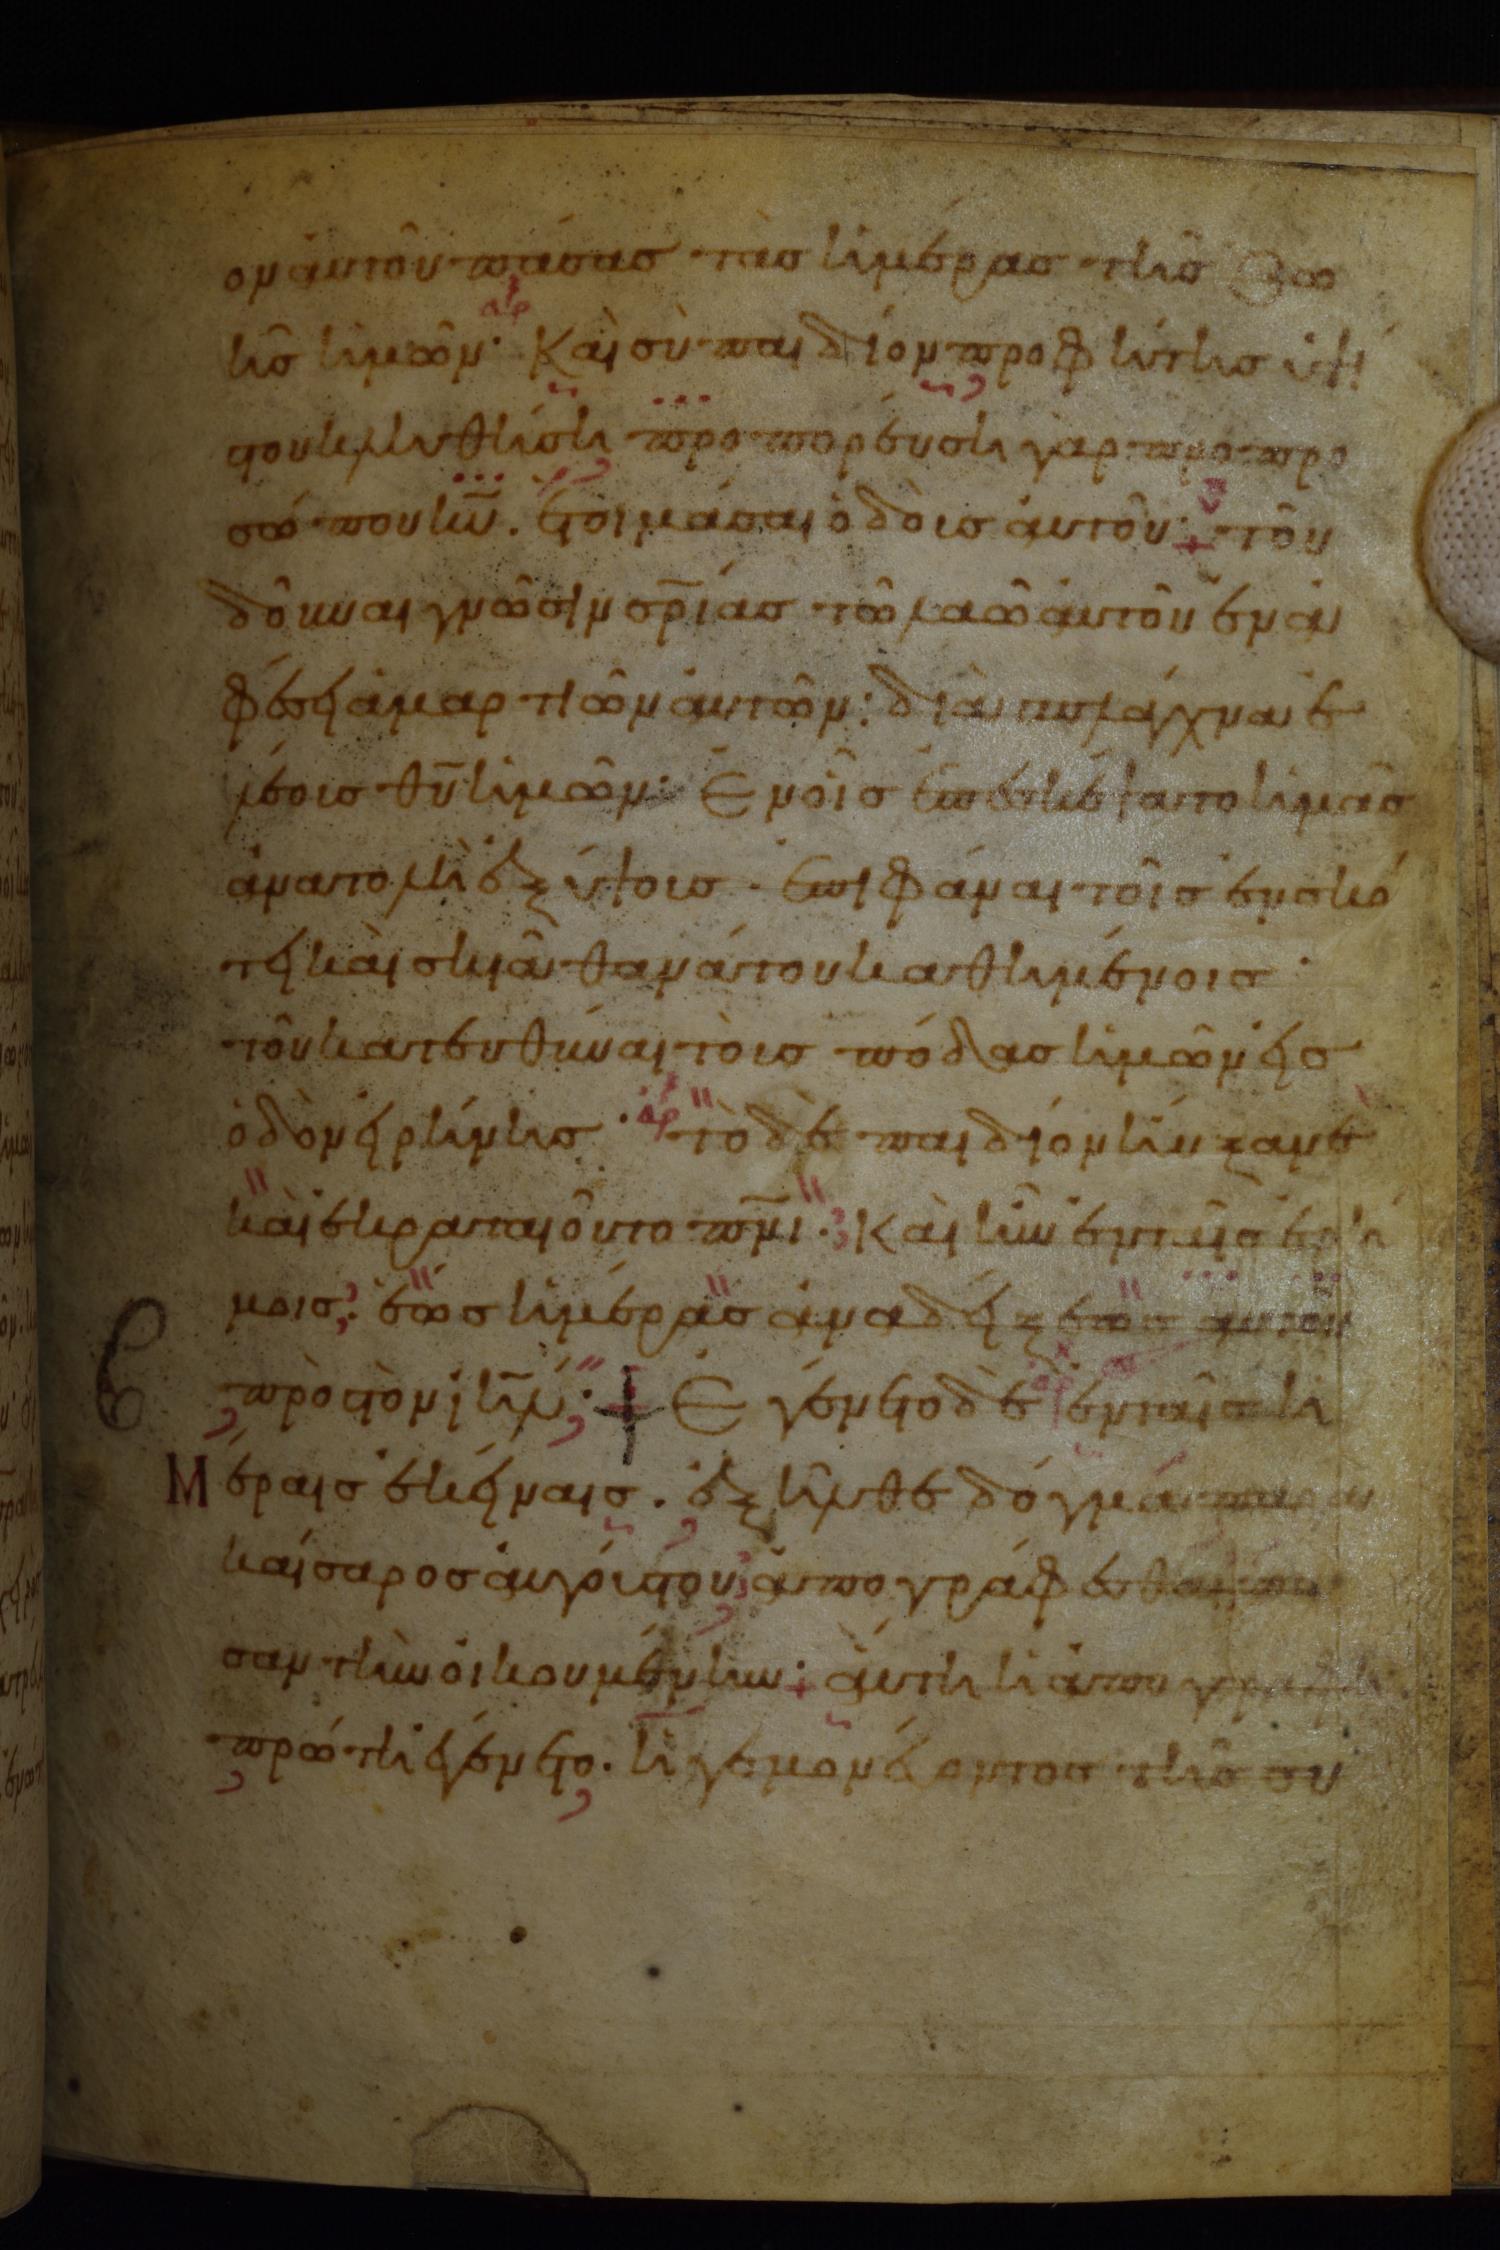 ον αυτοῦ πάσας τὰς ἡμέρας τῆς ζω
ῆς ἡμῶν· Καὶ σὺ παιδίον προφήτης ὑψί
στου κληθήσῃ προπορεύσῃ γὰρ πρὸ προ
σώπου κ̅υ̅. ἑτοιμάσαι ὁδοὺς ἀυτοῦ· + τοῦ
δοῦναι γνῶσιν σ̅ρ̅ίας τῶ λαῶ ἀυτοῦ ἐν ἀ
φέσει ἁμαρτιῶν ἀυτῶν: διὰ σπλάγχνα ἐ
λέους θ̅υ̅ ἡμῶν· Ἐν οἷς ἐπεσκέψατο ἡμᾶς
ἀνατολὴ ἐξ ὕψους. ἐπιφάναι τοῖς ἐν σκό
τει καὶ σκιᾶ θανάτου καθημένοις·
τοῦ κατευθύναι τοὺς πόδας ἡμῶν εἰς
ὁδὸν εἰρήνης· τὸ δὲ παιδίον ηὔξανε
καὶ ἐκραταιοῦτο π̅ν̅ι· Καὶ ἦν ἐν ταῖς ἐρή
μοις· ἕως ἡμέρας ἀναδείξεως αυτοῦ
πρὸς τὸν ἰ̅η̅λ̅· + Ἐγένετο δὲ ἐν ταῖς ἡ
Μέραις ἐκείναις. ἐξῆλθε δόγμα παρὰ
καίσαρος ἀυγούστου ἀπογράφεσθαι πᾶ
σαν τὴν οἰκουμένην· + ἁύτη ἡ ἀπογραφὴ
πρώτη ἐγένετο. ἡγεμονεύοντος τῆς συ